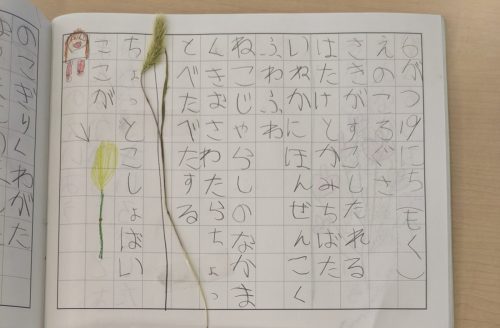 6がつ19にち(もく)
えのころぐさ
さきがすこしたれる
はたけとかみちばた
いねかにほんぜんこく
ふわふわ
ねこじゃらしのなかま
んきおさわたらちょっ
とべたべたする
ちょっとこしょばい
ここが
のこぎりくわがた